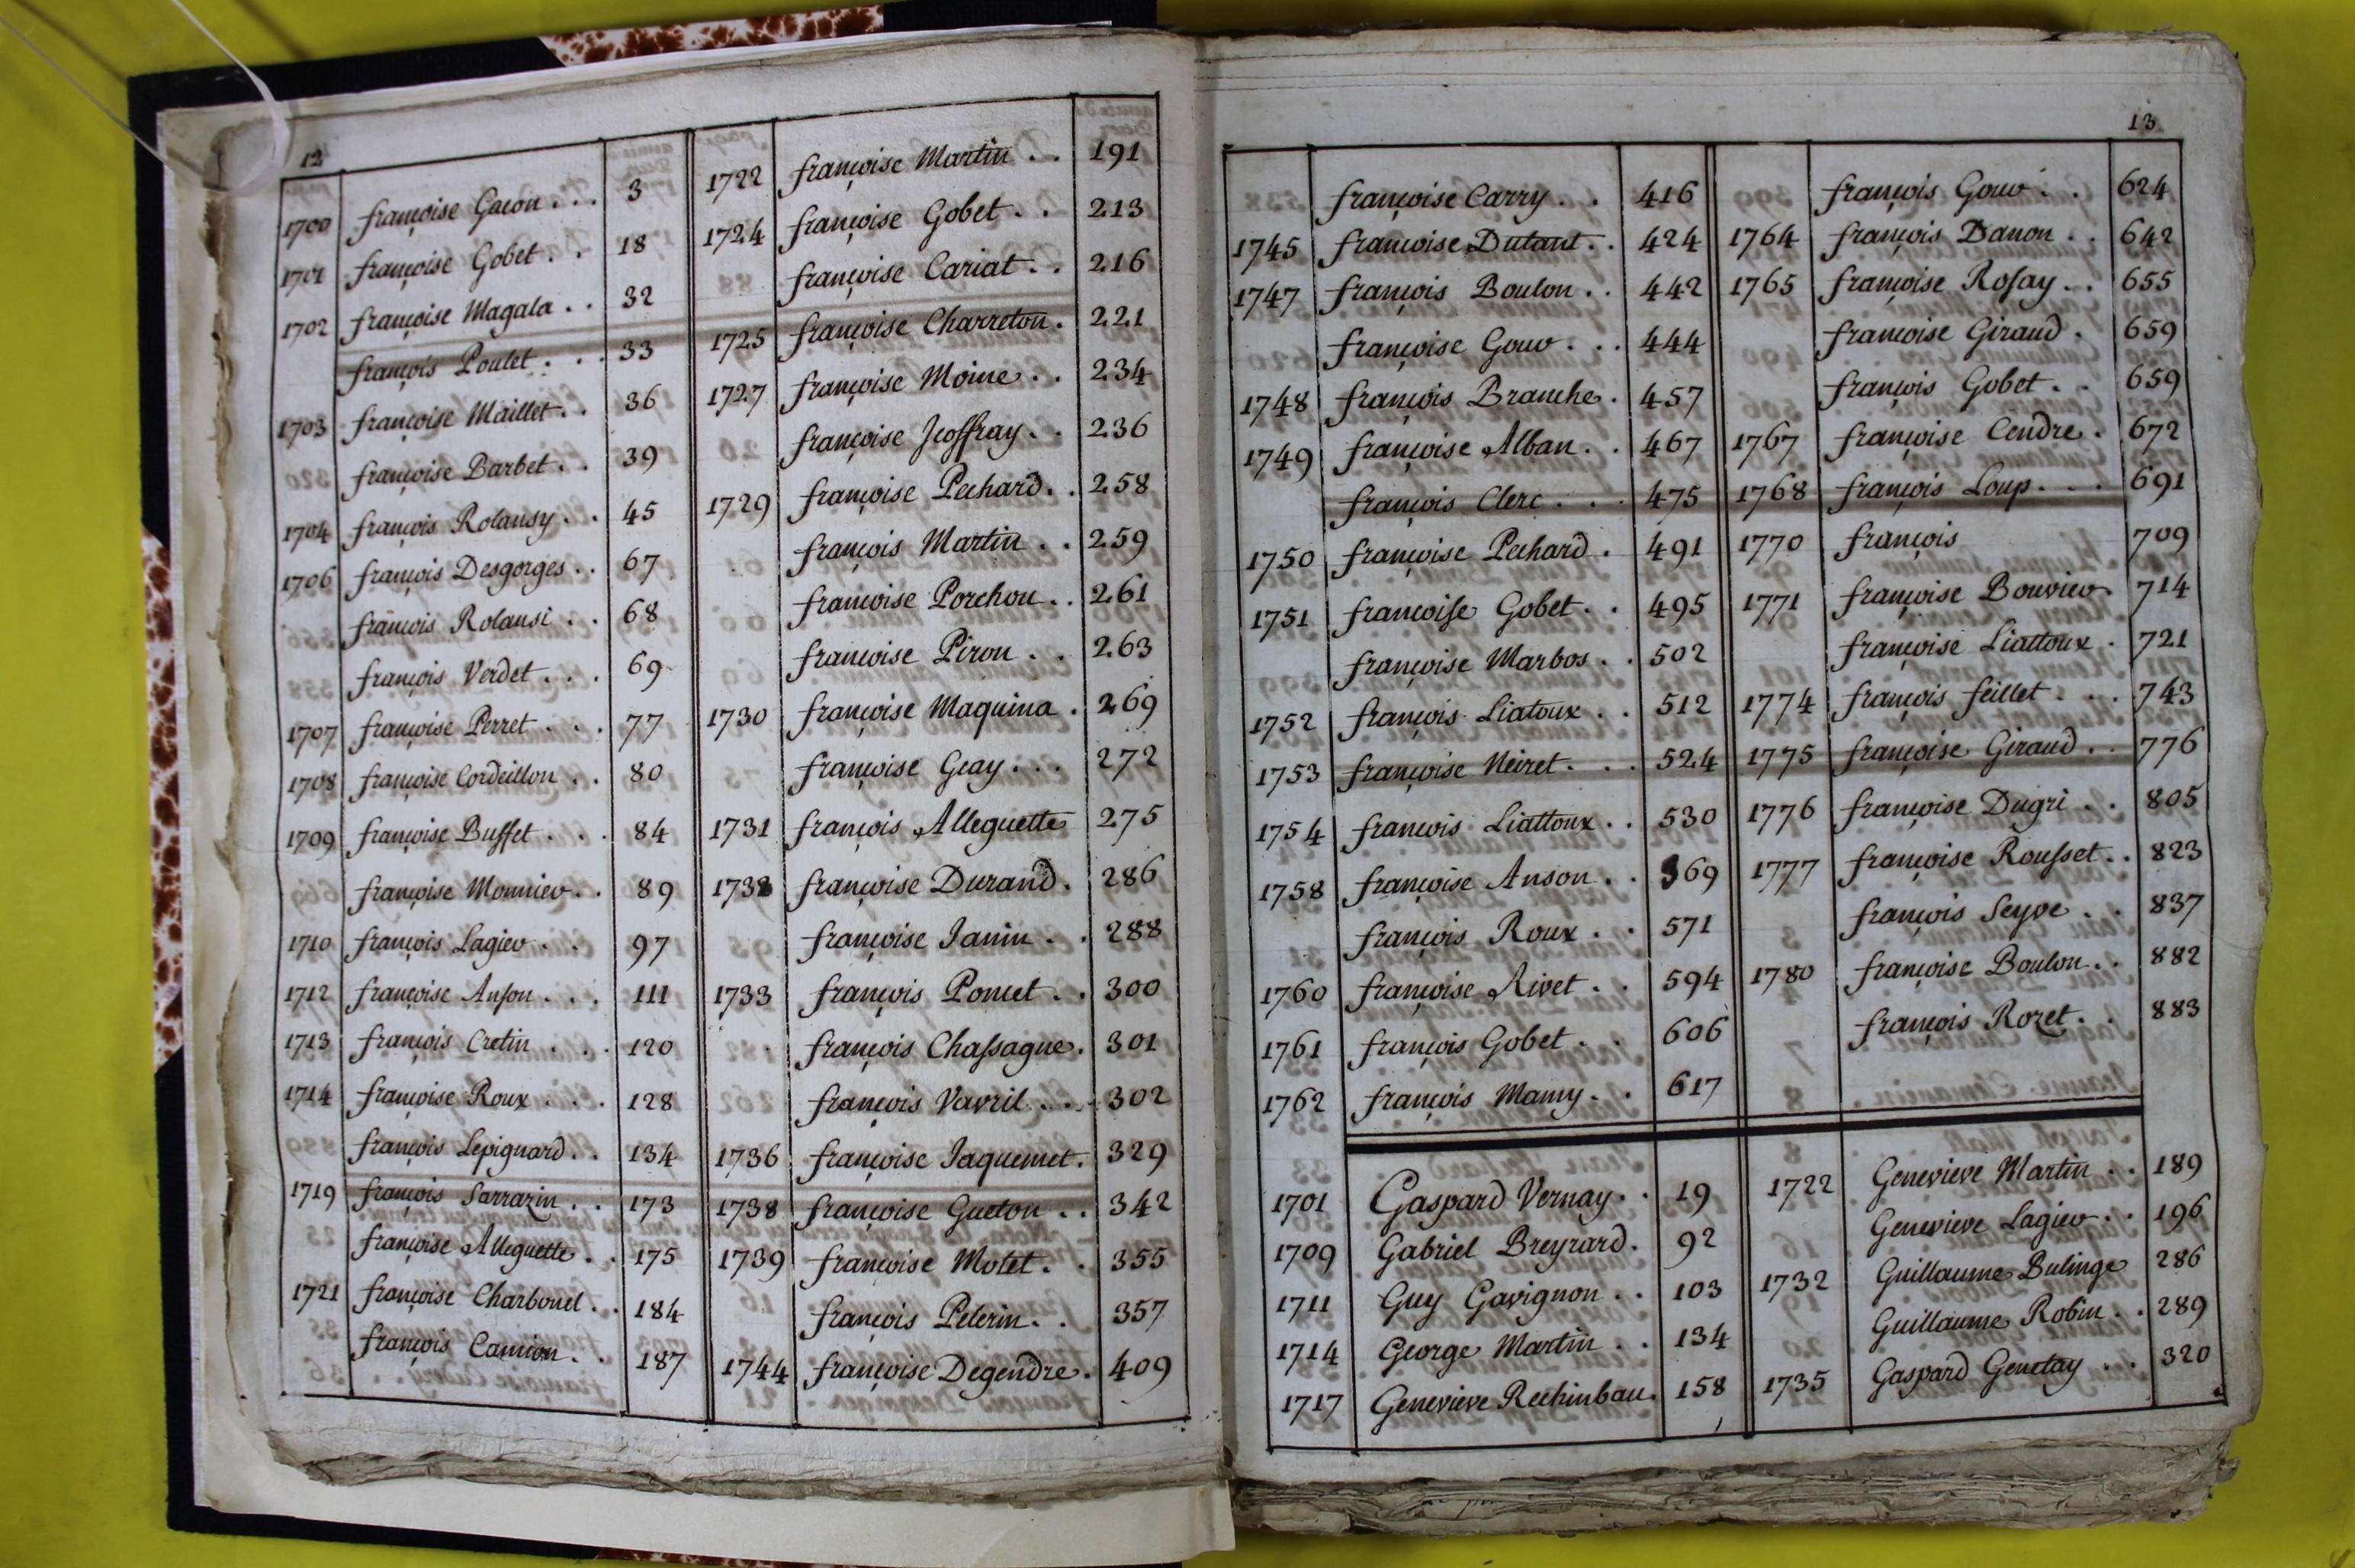 12
1700 françoise Gacon . . . 3
1701 françoise Gobet . . 18
1702 françoise Magala . . 32
françois Poulet . . . 33
1703 françoise Maillet . . 36
françoise Barbet . . 39
1704 françois Rolansy . . 45
1706 françois Desgorges . . 67
françois Rolansi . . 68
françois Verdet . . . 69
1707 françoise Perret . . . 77
1708 françoise Cordeillon . . 80
1709 françoise Buffet . . . 84
françoise Monnier . . 89
1710 françois Lagier . . 97
1712 françoise Anson . . . 111
1713 françois Cretin . . . 120
1714 françoise Roux . . . 128
françois Lepignard . . 134
1719 françois Sarrazin . . 173
françoise Alleguette . . 175
1721 françoise Charbonel . . 184
françois Camion . . 187
1722 françoise Martin . . 191
1724 françoise Gobet . . 213
françoise Cariat . . 216
1725 françoise Charreton . 221
1727 françoise Moine . . 234
françoise Jeoffray . . 236
1729 françoise Pechard . . 258
françois Martin . . 259
françoise Porchon . . 261
françoise Piron . . 263
1730 françoise Maquina . 269
françoise Geay . . . 272
1731 françois Alleguette 275
1732 françoise Durand . 286
françoise Janin . . 288
1733 françois Poncet . . 300
françois Chassagne . 301
françois Vavril . . . 302
1736 françoise Jaquemet . 329
1738 françoise Gueton . . 342
1739 françoise Motet . . 355
françois Pelerin . . 357
1744 françoise Degendre . 409
13
françoise Carry . . 416
1745 françoise Dutant . . 424
1747 françois Boulon . . 442
françoise Gouv . . . 444
1748 françois Branche . 457
1749 françoise Alban . . 467
françois Clerc . . . 475
1750 françoise Pechard . 491
1751 françoise Gobet . . 495
françoise Marbos . . 502
1752 françois Liatoux . . 512
1753 françoise Neiret . . . 524
1754 françois Liattoux . . 530
1758 françoise Anson . . 569
françois Roux . . 571
1760 françoise Rivet . . 594
1761 françois Gobet . . 606
1762 françois Mamy . . 617
françois Gouv . . 624
1764 françois Danon . . 642
1765 françoise Rosay . . 655
françoise Giraud . 659
françois Gobet . . 659
1767 françoise Cendre . 672
1768 françois Loup . . . 691
1770 françois 709
1771 françoise Bouvier . 714
françoise Liattoux . 721
1774 françois feillet . . . 743
1775 françoise Giraud . . 776
1776 françoise Dugri . . 805
1777 françoise Rousset . . 823
françois Seyve . . 837
1780 françoise Boulon . . 882
françois Rozet . . 883
1701 Gaspard Vernay . . 19
1709 Gabriel Breyrard . 92
1711 Guy Gavignon . . 103
1714 George Martin . . 134
1717 Genevieve Rechinbau . 158
1722 Genevieve Martin . . 189
Genevieve Lagier . . 196
1732 Guillaume Bulinge 286
Guillaume Robin . . 289
1735 Gaspard Genetay . . 320